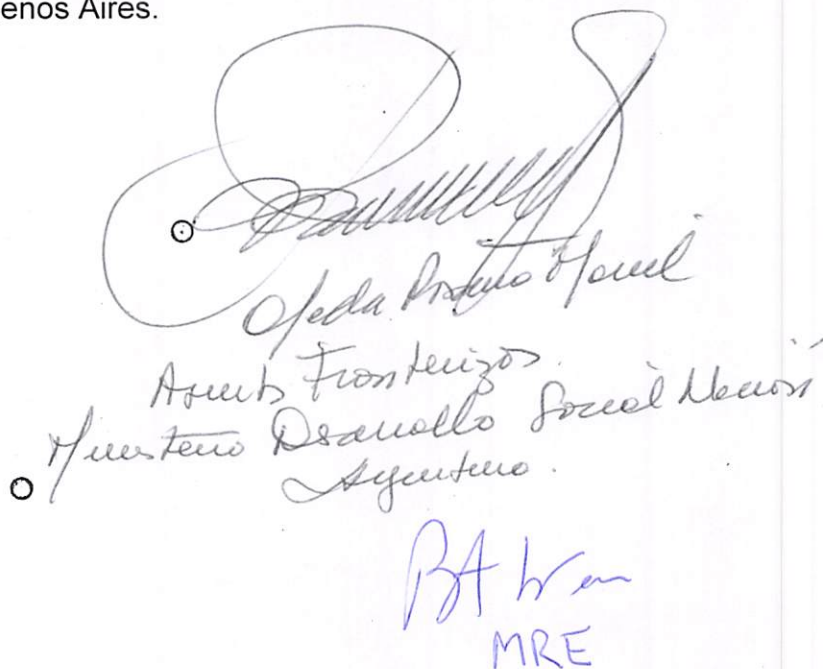 enos Aires.
Ojeda Manuel
Asuntos Fronterizos.
Ministerio Desarrollo Social Nación
Argentina.
MRE